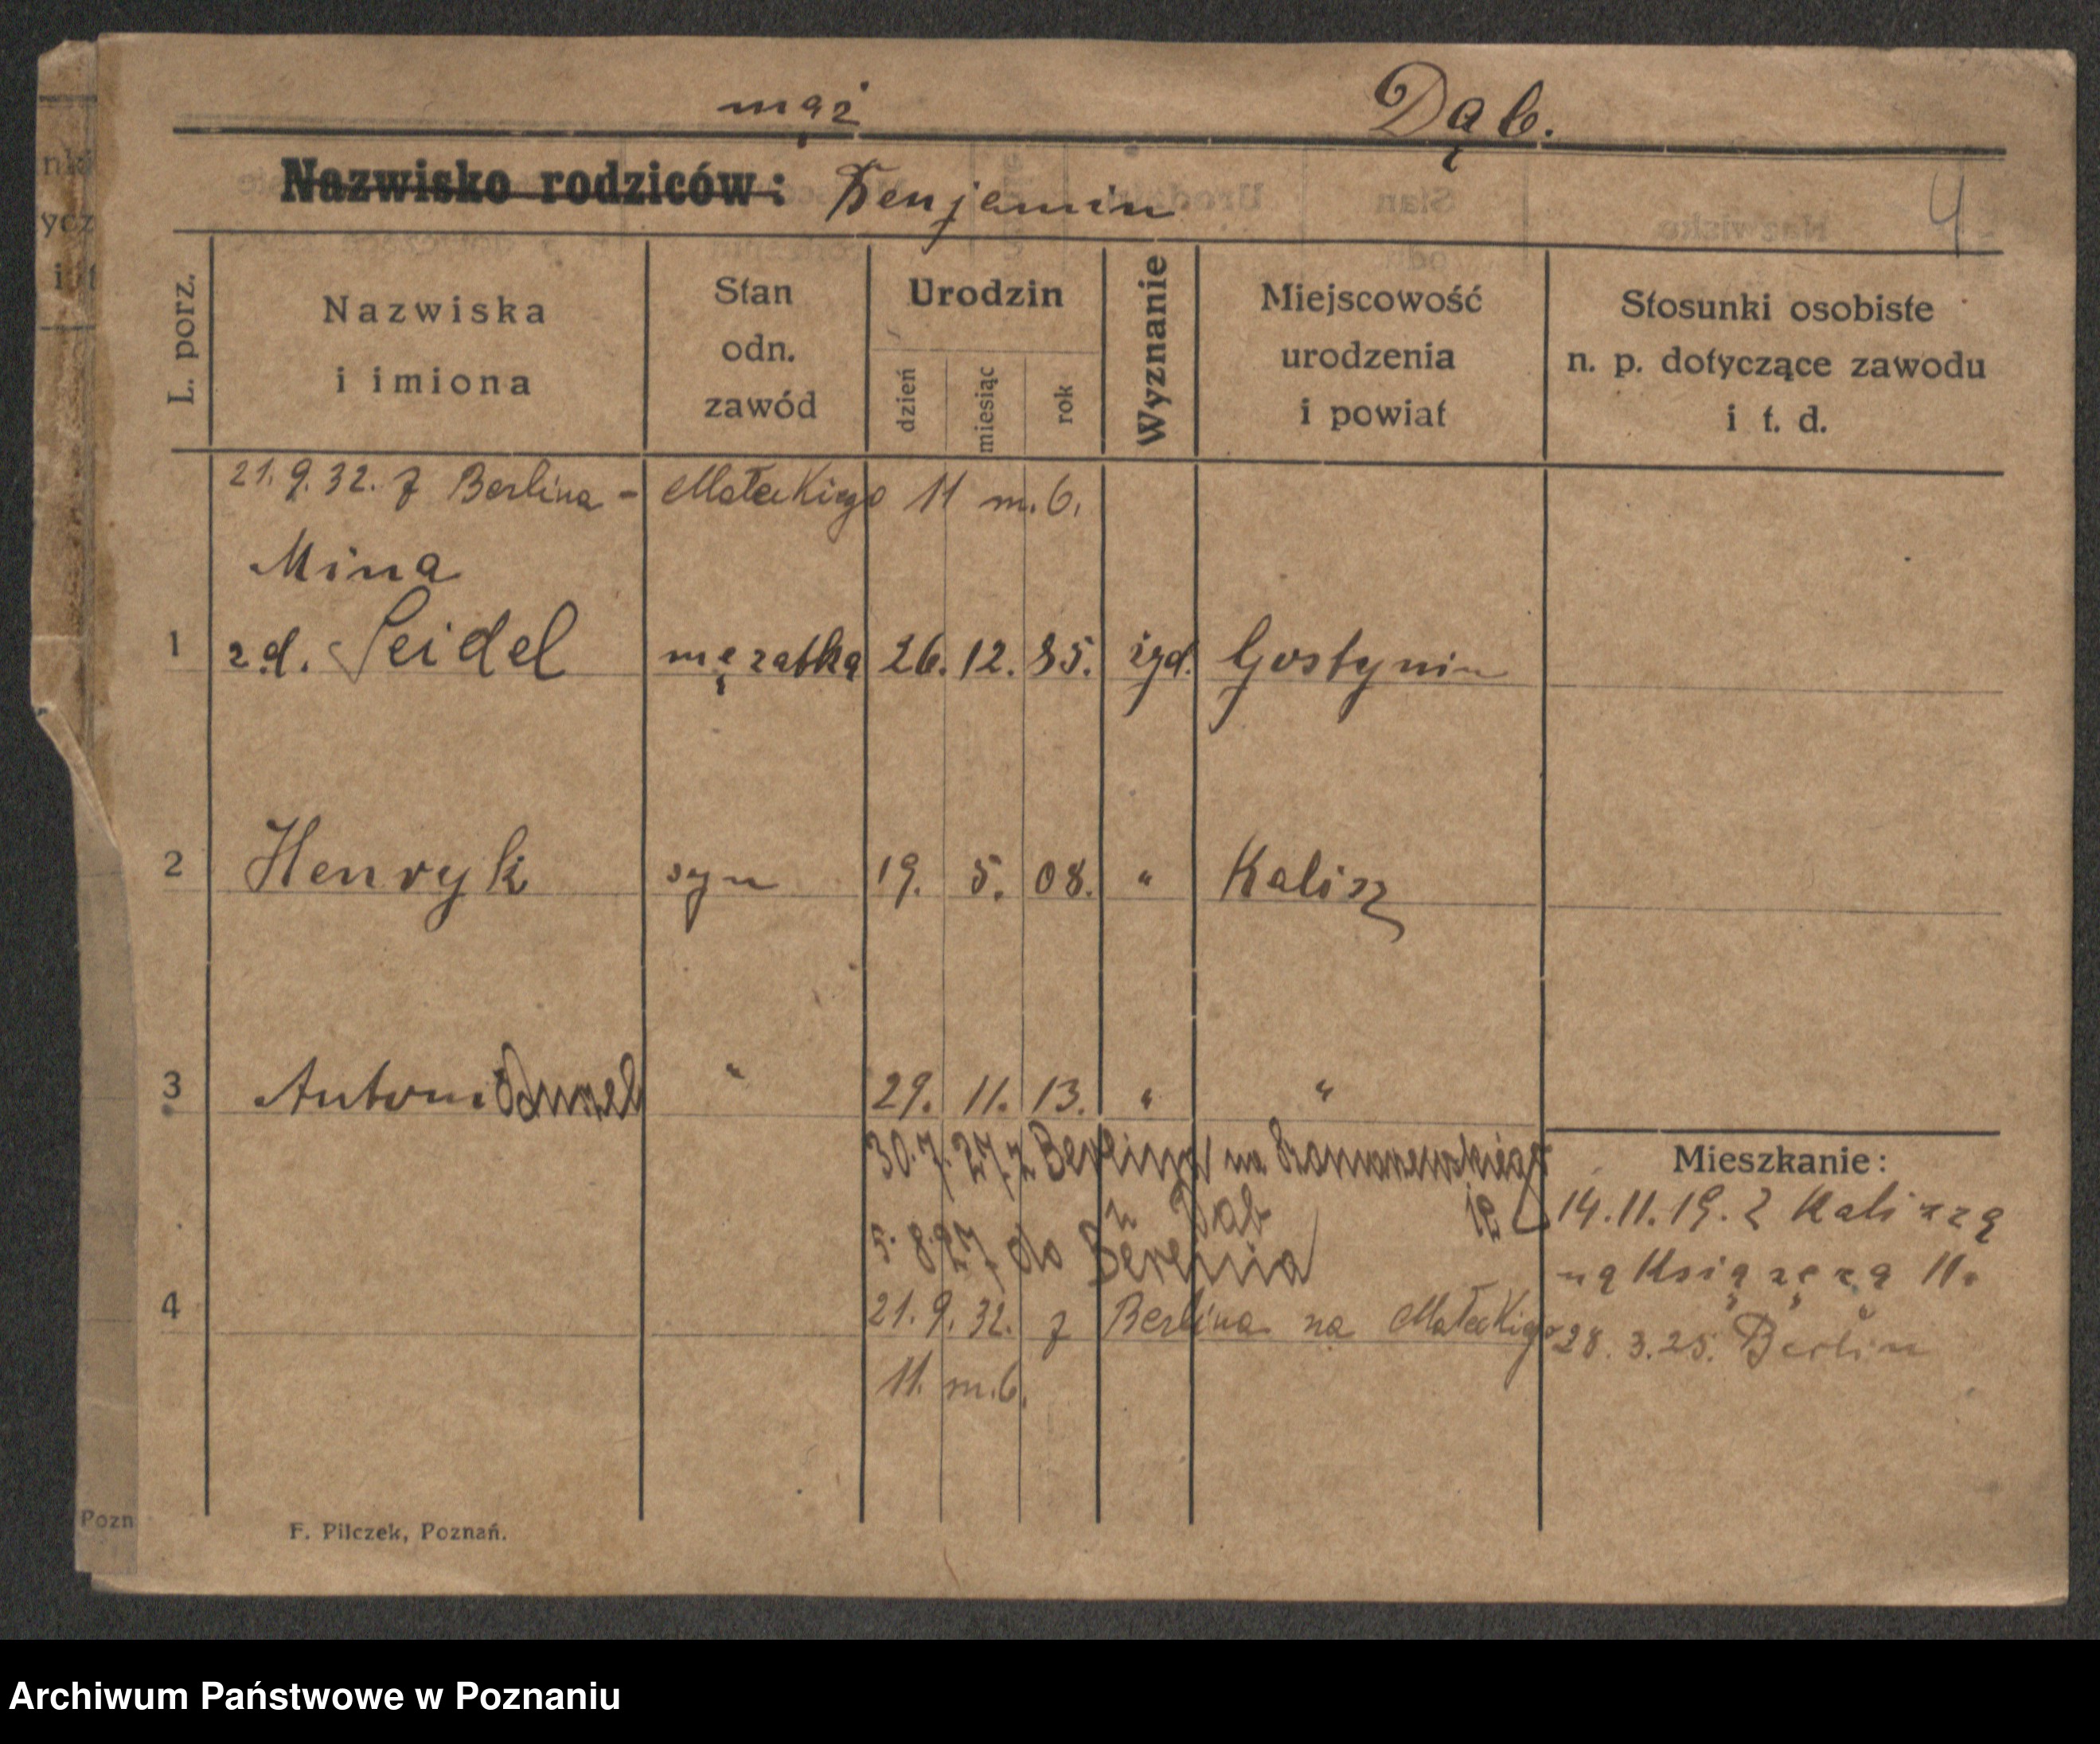 mąż
Dąb.
Nazwisko rodziców: Benjamin
4
L. porz.
Nazwiska
i imiona
Stan
odn.
zawód
Urodzin
dzień
miesiąc
rok
Wyznanie
Miejscowość
urodzenia
i powiat
Stosunki osobiste
n. p. dotyczące zawodu
i t. d.
21.9.32. z Berlina - Małeckiego 11 m. 6.
Mina
1 z d. Seidel mężatka 26. 12. 85. żyd. Gostynin
2 Henryk syn 19. 5. 08. " Kalisz
3 Antoni " 29. 11. 13. " "
30.7.27 z Berlina na
Mieszkanie:
z Dąb
14.11.19. z Kalisza
5.8.27 do Berlina
na Książęcą 11.
4 21.9.32. z Berlina na Małeckiego
28.3.25. Berlin
11. m. 6.
F. Pilczek, Poznań.
Pozn
Archiwum Państwowe w Poznaniu